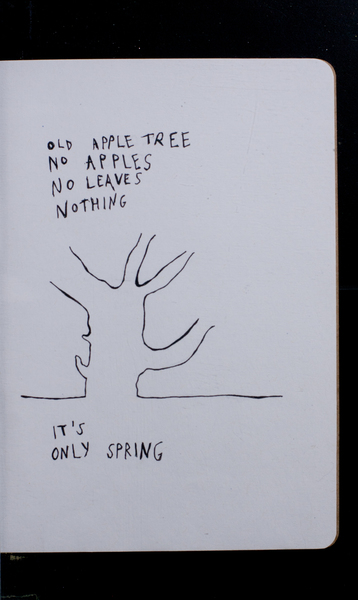 OLD APPLE TREE
NO APPLES
NO LEAVES
NOTHING
IT'S
ONLY SPRING